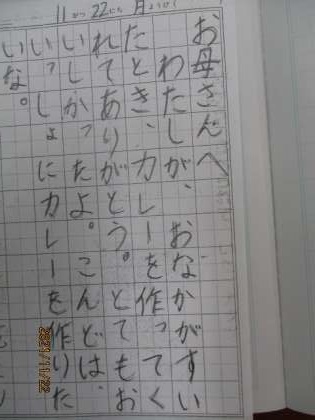 11がつ22にち 月ようび
お母さんへ
わたしが、おなかがすい
たとき、カレーを作ってく
れてありがとう。とてもお
いしかったよ。こんどは、
いっしょにカレーを作りた
いな。
2021/11/22